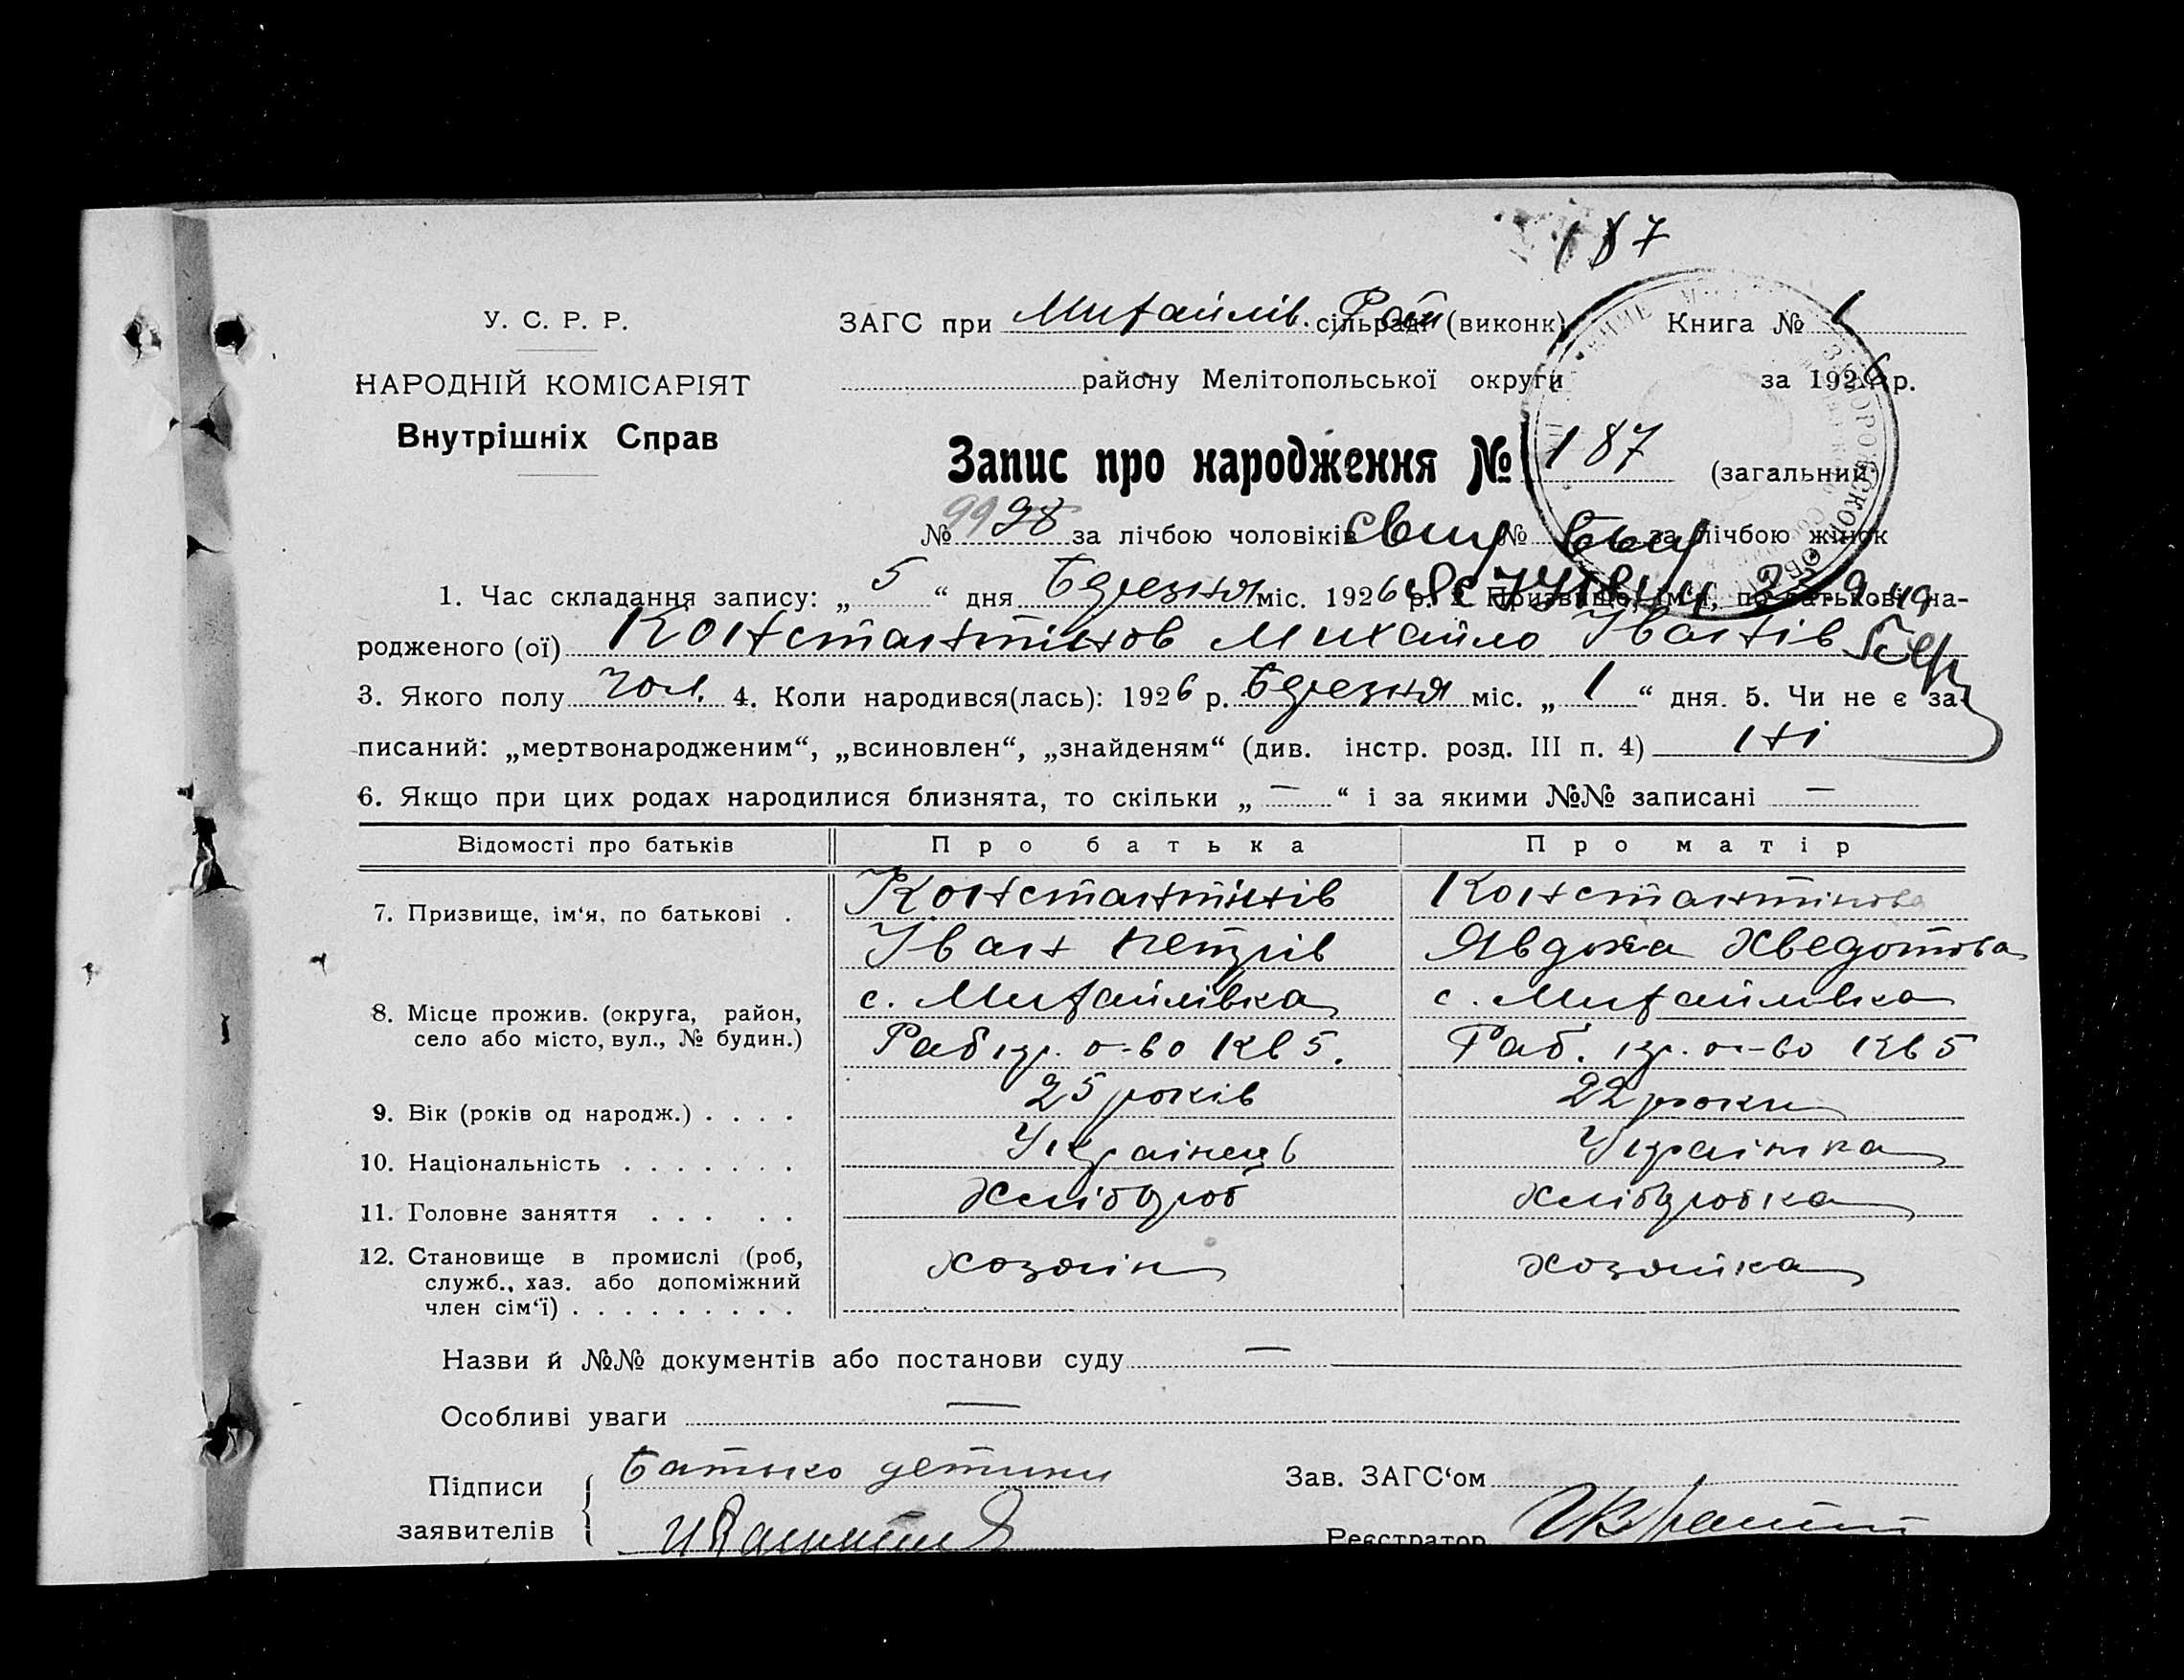 187
У. С. Р. Р.
ЗАГС при Михайлів. сільраді (виконк)
Книга № 1
НАРОДНІЙ КОМІСАРІЯТ
району Мелітопольської округи
за 1926 р.
Внутрішніх Справ
Запис про народження № 187 (загальний)
№ 99 98 за лічбою чоловіків № за лічбою жінок
1. Час складання запису: „ 5 “ дня Березня міс. 1926 р. 2. Призвище, ім'я, по батькові на-
родженого (ої) Константинов Михайло Іванів
3. Якого полу чол. 4. Коли народився(лась): 1926 р. Березня міс. „ 1 “ дня. 5. Чи не є за-
писаний: „мертвонародженим“, „всиновлен“, „знайденям“ (див. інстр. розд. III п. 4) Ні
6. Якщо при цих родах народилися близнята, то скільки „ — “ і за якими №№ записані —
Відомості про батьків Про батька Про матір
7. Призвище, ім‘я, по батькові .
Константинів Константинова
Іван Петрів Явдоха Хведотова
8. Місце прожив. (округа, район,
село або місто, вул., № будин.)
с. Михайлівка с. Михайлівка
Раб кр. о-во Кв 5. Раб. кр. о-во Кв 5
9. Вік (років од народж.) . . . . 25 років 22 роки
10. Національність . . . . . . . Українець Українка
11. Головне заняття . . . . . Хлібороб Хліборобка
12. Становище в промислі (роб,
служб., хаз. або допоміжний
член сім‘ї) . . . . . . . . .
хозяїн хозяйка
Назви й №№ документів або постанови суду —
Особливі уваги —
Підписи
заявителів
Батько детини
Зав. ЗАГС‘ом
Реєстратор